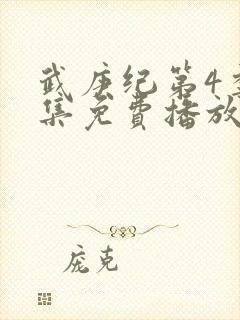 武庚纪第4季
集免費播放
庞克